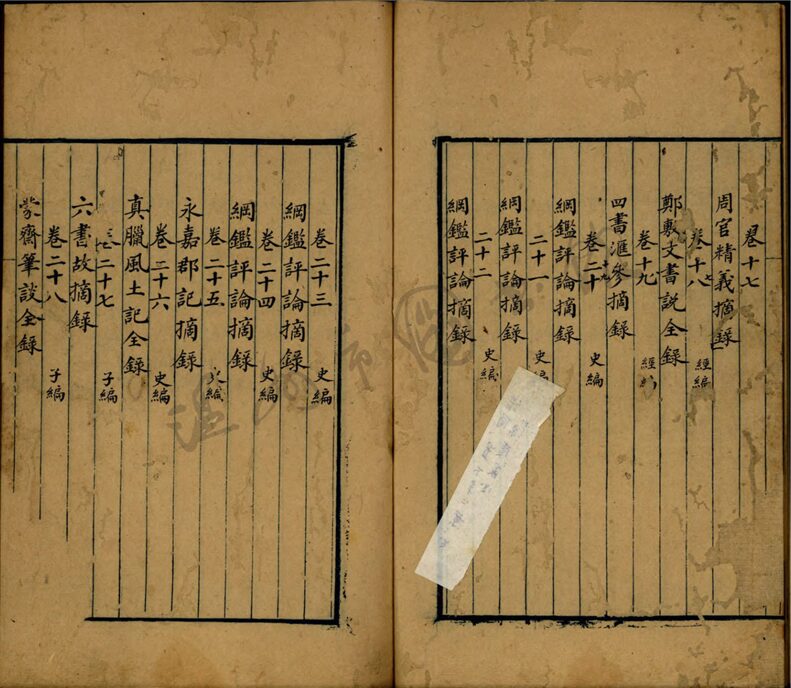 卷十七
周官精義摘録 經編
卷十八
鄭敷文書説全録 經
卷十九
四書滙參摘録 史編
卷二十
綱鑑評論摘録 史
二十一
綱鑑評論摘録 史編
二十二
綱鑑評論摘録
卷二十三 史編
綱鑑評論摘録
卷二十四 史編
綱鑑評論摘録
卷二十五 史編
永嘉郡記摘録
卷二十六 史編
真臘風土記全録
二十七 子編
六書故摘録
卷二十八 子編
蒙齋筆談全録